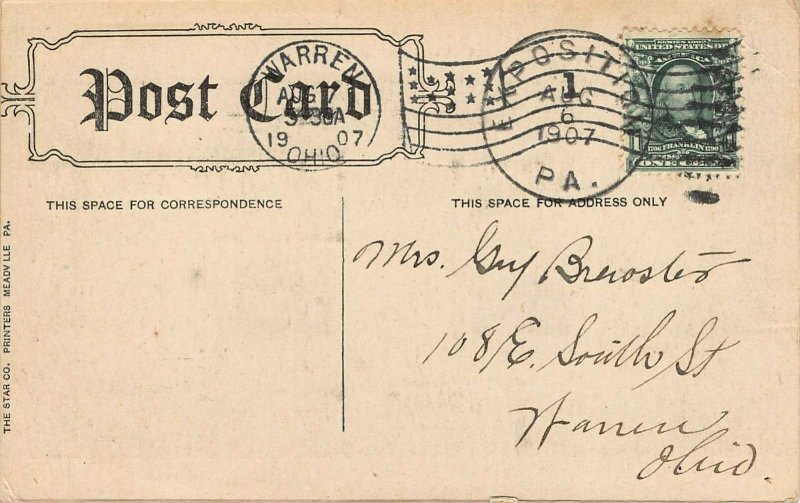 Post Card
WARREN
AUG
5-30A
19 07
OHIO
EXPOSITION
1
AUG
6
1907
PA.
SERIES 1902
UNITED STATES OF
AMERICA
1706 FRANKLIN 1790
ONE CENT
THIS SPACE FOR CORRESPONDENCE
THIS SPACE FOR ADDRESS ONLY
Mrs. Guy Brewster
108 E. South St
Warren
Ohio.
THE STAR CO. PRINTERS MEADVILLE PA.